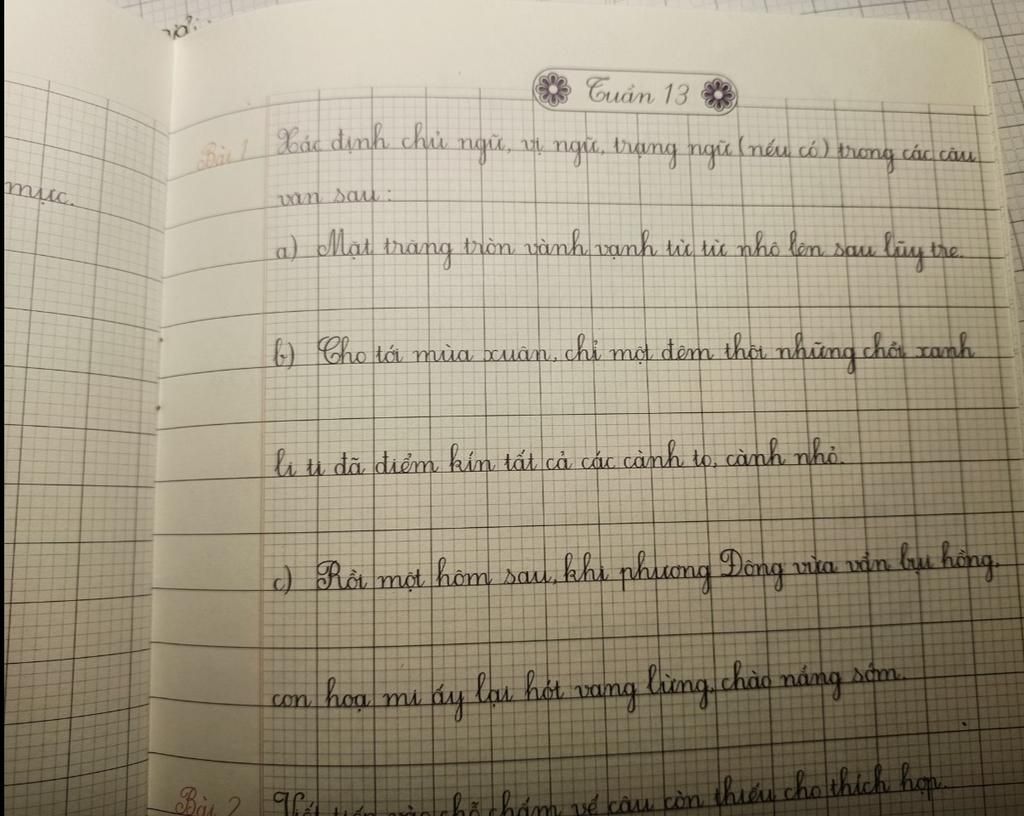 vở:
mực.
Tuần 13
Bài 1 Xác định chủ ngữ, vị ngữ, trạng ngữ (nếu có) trong các câu
văn sau:
a) Mặt trăng tròn vành vạnh từ từ nhô lên sau lũy tre.
b) Cho tới mùa xuân, chỉ một đêm thôi những chồi xanh
li ti đã điểm kín tất cả các cành to, cành nhỏ.
c) Rồi một hôm sau, khi phương Đông vừa vẩn bụi hồng,
con hoạ mi ấy lại hót vang lừng, chào nắng sớm.
Bài 2 chỗ chấm về câu còn thiếu cho thích hợp.